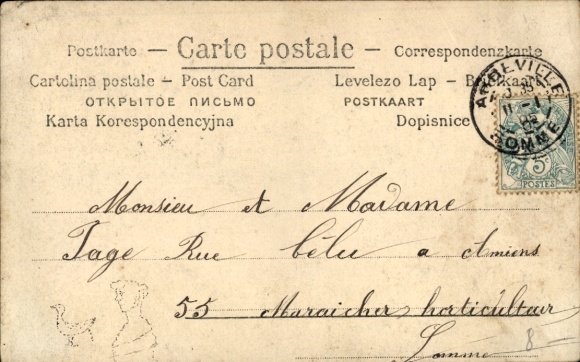 Postkarte — Carte postale — Correspondenzkarte
Cartolina postale — Post Card Levelezo Lap —
ОТКРЫТОЕ ПИСЬМО POSTKAART
Karta Korespondencyjna Dopisnice
ABBEVILLE
11 - 1
SOMME
5c
POSTES
Monsieu et Madame
Page Rue Bélu a Amiens
55 Maraicher horticulteur
Somme
8 —